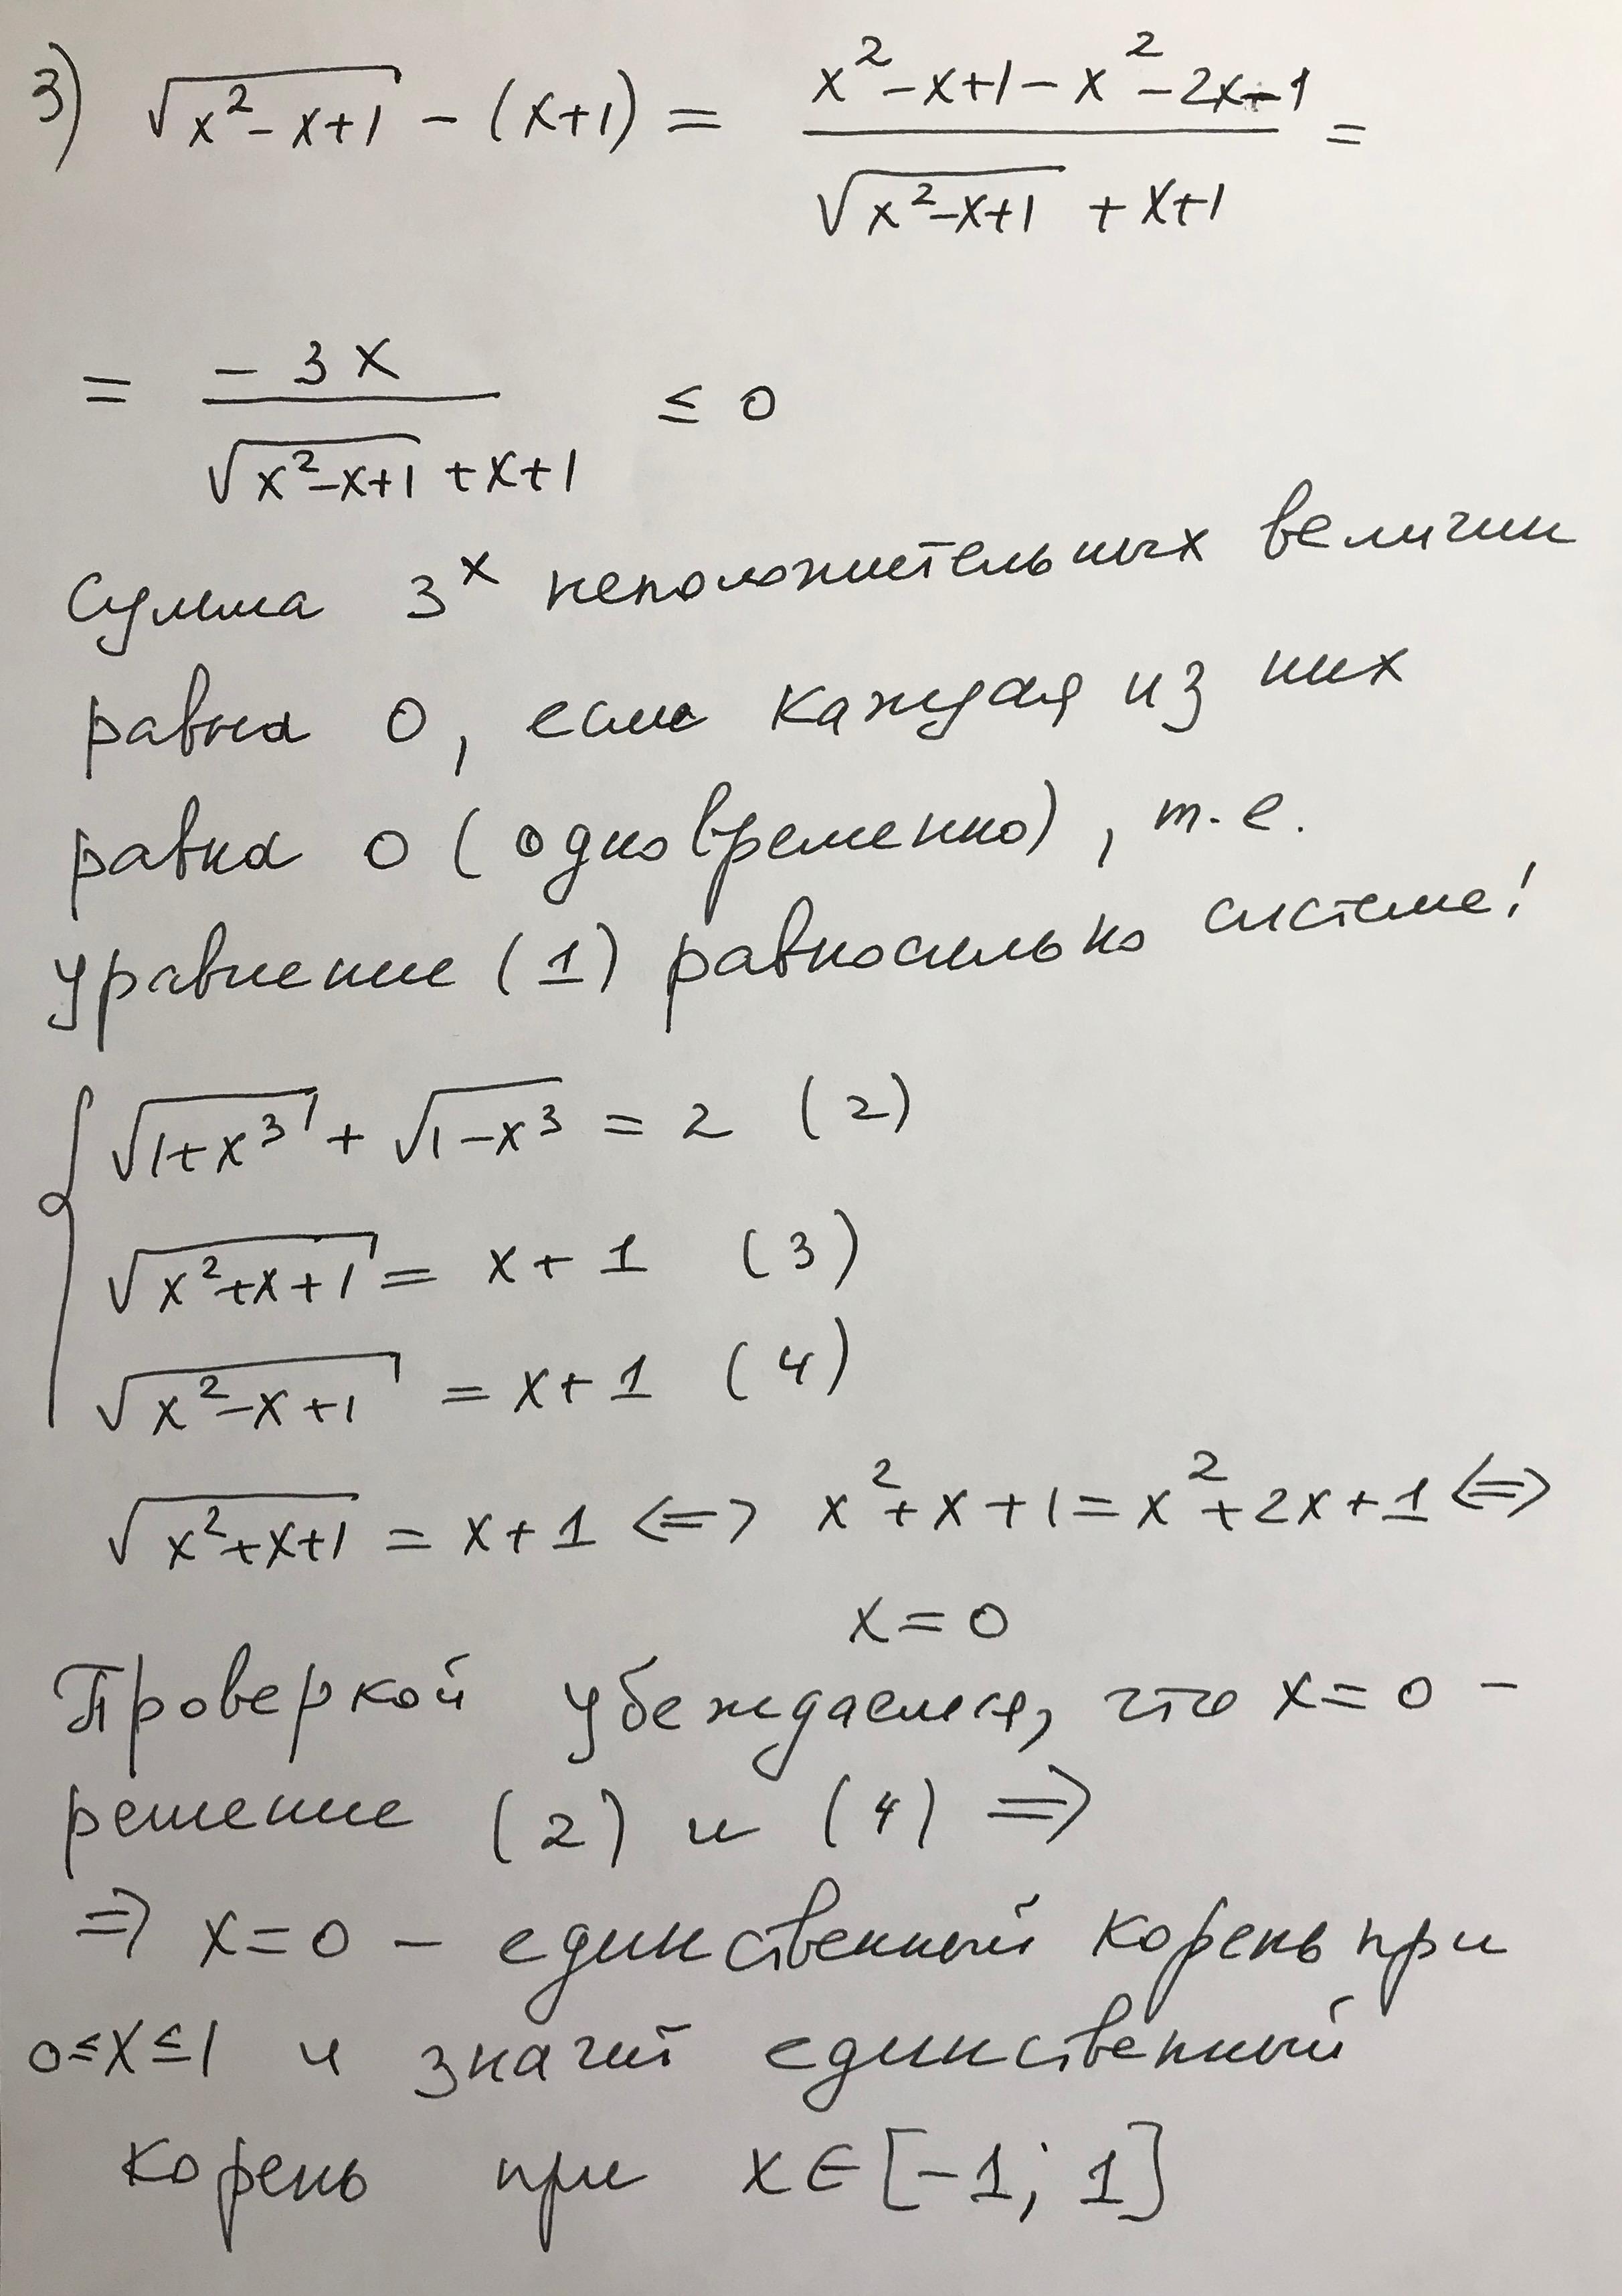 3) √(x²-x+1) - (x+1) = (x²-x+1-x²-2x-1)/(√(x²-x+1) + x+1) =
= (-3x)/(√(x²-x+1) + x+1) ≤ 0
Сумма 3ˣ неположительных величин
равна 0, если каждая из них
равна 0 (одновременно), т.е.
уравнение (1) равносильно системе!
{ √(1+x³) + √(1-x³) = 2 (2)
√(x²+x+1) = x+1 (3)
√(x²-x+1) = x+1 (4)
√(x²+x+1) = x+1 <=> x²+x+1 = x²+2x+1 <=>
x=0
Проверкой убеждаемся, что x=0 -
решение (2) и (4) =>
=> x=0 - единственный корень при
0≤x≤1 и значит единственный
корень при x∈[-1; 1]